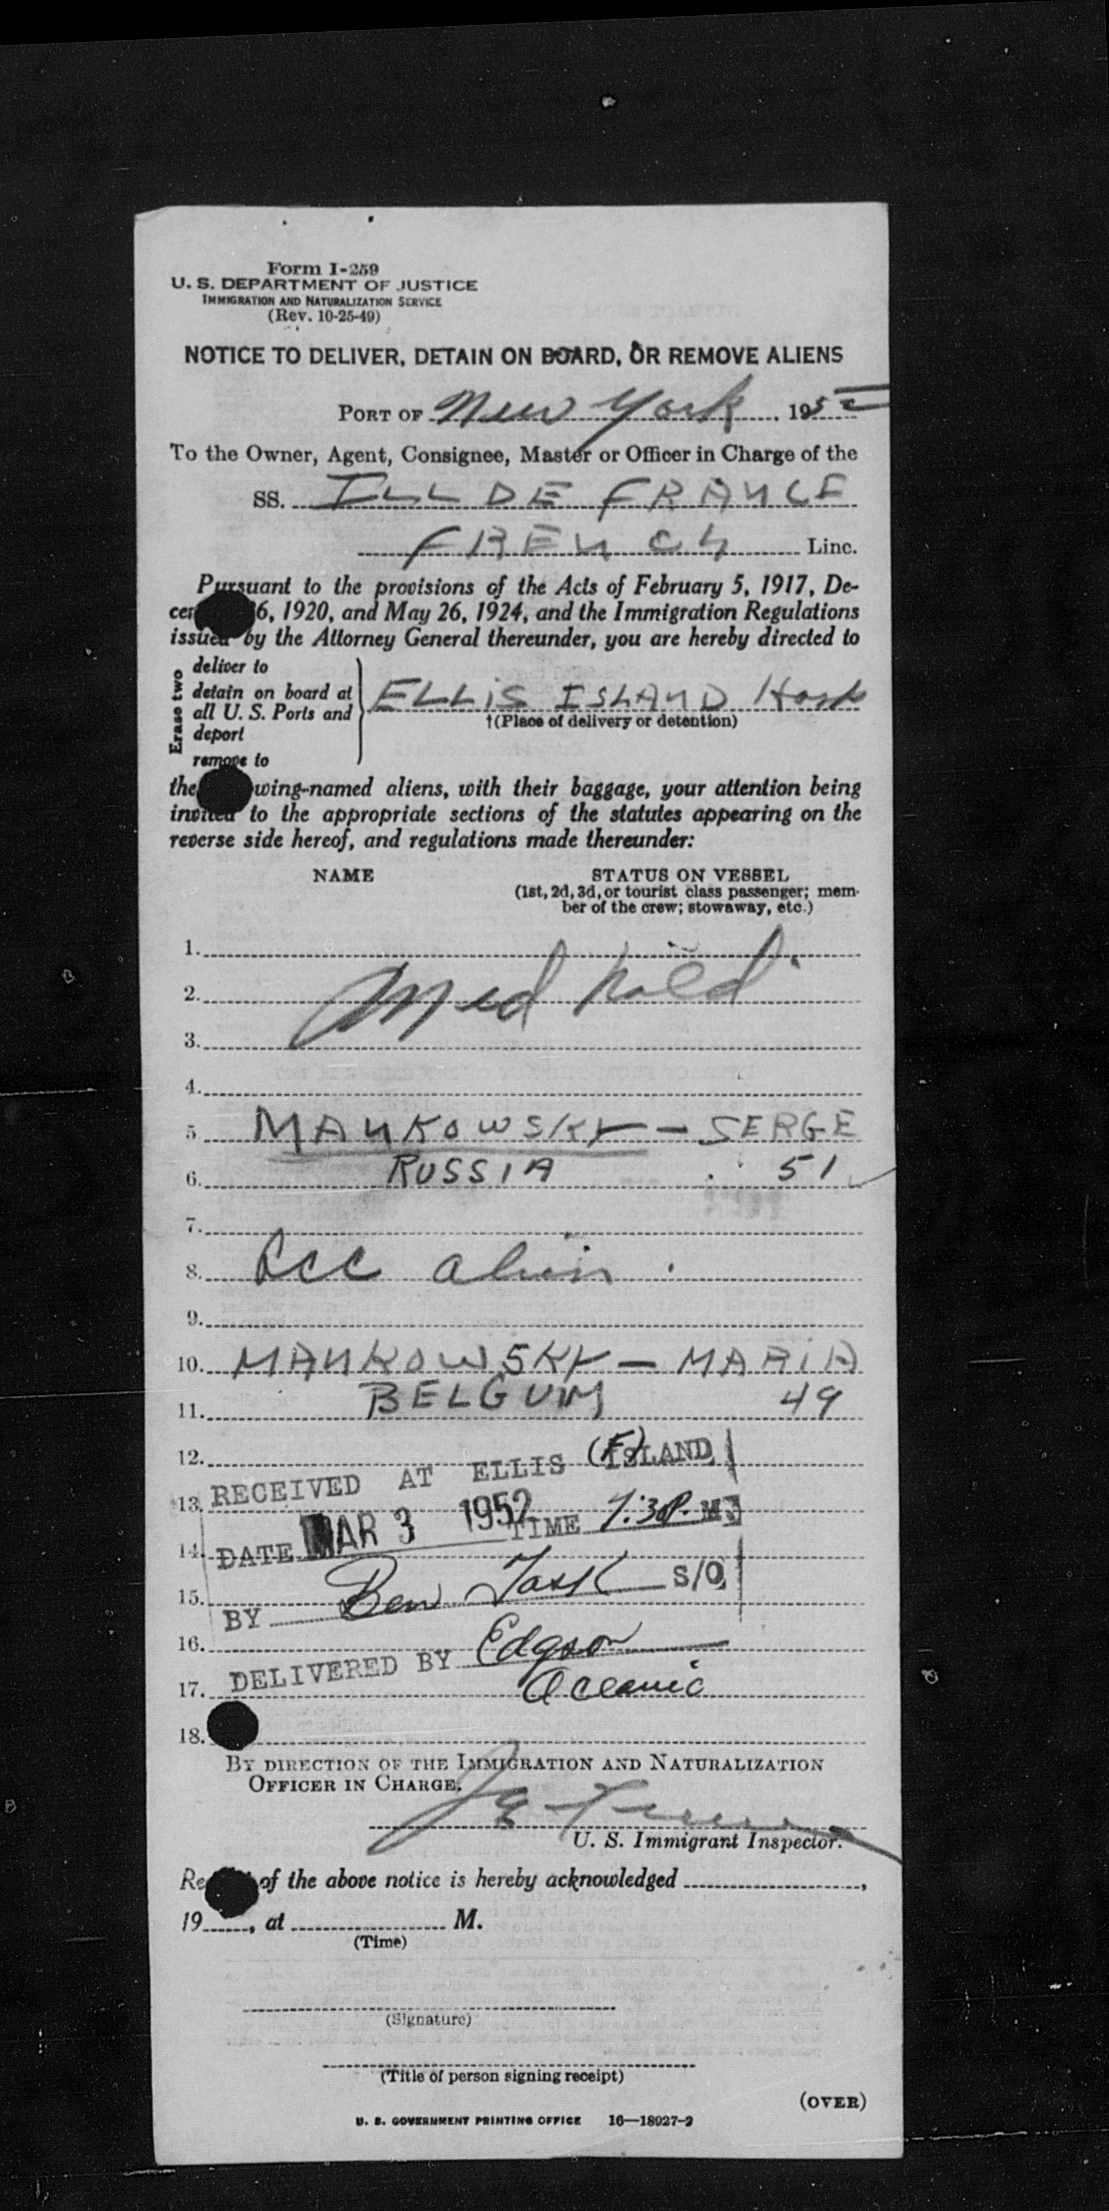 Form I-259
U. S. DEPARTMENT OF JUSTICE
IMMIGRATION AND NATURALIZATION SERVICE
(Rev. 10-25-49)
NOTICE TO DELIVER, DETAIN ON BOARD, OR REMOVE ALIENS
PORT OF New York, 1952
To the Owner, Agent, Consignee, Master or Officer in Charge of the
SS. ILL DE FRANCE
FRENCH Line.
Pursuant to the provisions of the Acts of February 5, 1917, De-
6, 1920, and May 26, 1924, and the Immigration Regulations
issued by the Attorney General thereunder, you are hereby directed to
Erase two
deliver to
detain on board at
all U. S. Ports and
deport
remove to
ELLIS ISLAND Hosp
†(Place of delivery or detention)
the wing-named aliens, with their baggage, your attention being
invited to the appropriate sections of the statutes appearing on the
reverse side hereof, and regulations made thereunder:
NAME STATUS ON VESSEL
(1st, 2d, 3d, or tourist class passenger; mem-
ber of the crew; stowaway, etc.)
1.
2. Med hold
3.
4.
5 MANKOWSKY - SERGE
6. RUSSIA 51
7.
8. acc alien
9.
10. MANKOWSKY - MARIA
11. BELGUM 49
12.
RECEIVED AT ELLIS (F) ISLAND
13.
DATE MAR 3 1952 TIME 7:30 P. M.
14.
15.
BY Ben Task S/O
16.
DELIVERED BY Edgson
17. Oceanic
18.
BY DIRECTION OF THE IMMIGRATION AND NATURALIZATION
OFFICER IN CHARGE.
U. S. Immigrant Inspector.
of the above notice is hereby acknowledged ,
19 , at M.
(Time)
(Signature)
(Title of person signing receipt)
(OVER)
U. S. GOVERNMENT PRINTING OFFICE 16—18027-2